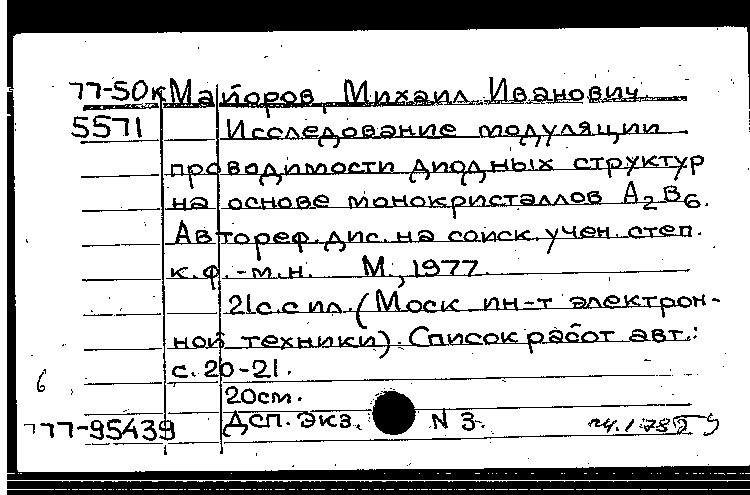 77-50к Майоров, Михаил Иванович.
5571 Исследование модуляции
проводимости диодных структур
на основе монокристаллов A₂B₆.
Автореф. дис. на соиск. учен. степ.
к.ф.-м.н. М., 1977.
21с. с ил. (Моск ин-т электрон-
ной техники). Список работ авт.:
с. 20-21.
6
20см.
Дсп. Экз. N 3.
777-95439